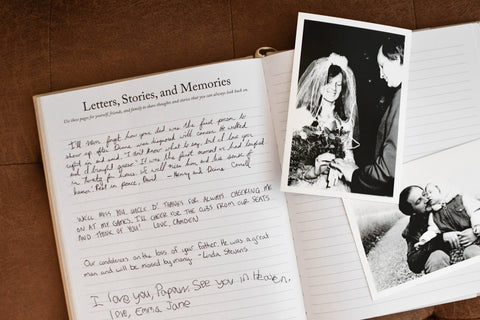 Letters, Stories, and Memories
Use these pages for yourself, friends, and family to share thoughts and stories that you can always look back on.
I'll never forget how your dad was the first person to
show up after Diana was diagnosed with cancer. He walked
right in and said, "I don't know what to say, but I love you
and I brought It was the first time we had laughed
in twenty for hours. We'll miss him and his sense of
humor. Rest in peace, David. – Henry and Diana
WE'LL MISS YOU, UNCLE D! THANKS FOR ALWAYS CHEERING ME
ON AT MY GAMES. I'LL CHEER FOR THE CUBS FROM OUR SEATS
AND THINK OF YOU! LOVE, CAMDEN
Our condolences on the loss of your father. He was a great
man and will be missed by many. – Linda Stevens
I love you, Papaw. See you in heaven.
Love, Emma Jane